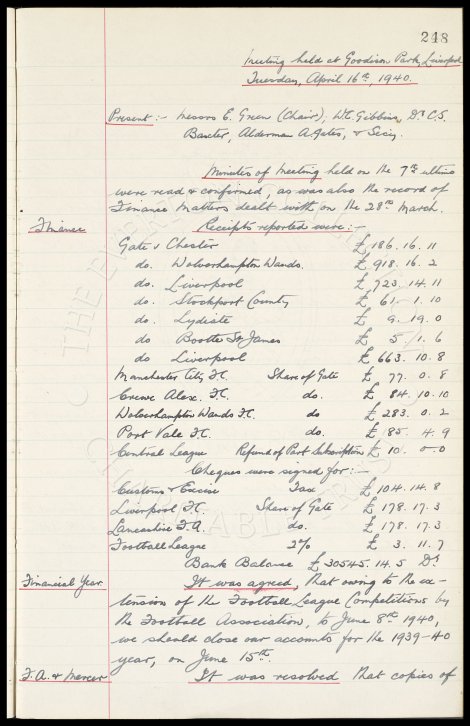 248
Meeting held at Goodison Park, Liverpool
Tuesday, April 16th, 1940.
Present :- Messrs E. Green (Chair), W.C. Gibbins, Dr C.S.
Baxter, Alderman A. Gates, & Secy.
Minutes of Meeting held on the 7th ultimo
were read & confirmed, as was also the record of
Finance Matters dealt with on the 28th March.
Finance Receipts reported were :-
Gate v Chester £186. 16. 11
do. Wolverhampton Wands. £918. 16. 2
do. Liverpool £723. 14. 11
do. Stockport County £61. 1. 10
do. Lydiate £9. 19. 0
do Bootle St James £5. 1. 6
do Liverpool £663. 10. 8
Manchester City F.C. Share of Gate £77. 0. 8
Crewe Alex. F.C. do. £84. 10. 10
Wolverhampton Wands F.C. do £283. 0. 2
Port Vale F.C. do. £85. 4. 9
Central League Refund of Part Subscription £10. 0. 0
Cheques were signed for :-
Customs & Excise Tax £104. 14. 8
Liverpool F.C. Share of Gate £178. 17. 3
Lancashire F.A. do. £178. 17. 3
Football League 2% £3. 11. 7
Bank Balance £30545. 14. 5 Dr
Financial Year It was agreed, that owing to the ex-
tension of the Football League Competitions by
the Football Association, to June 8th 1940,
we should close our accounts for the 1939-40
year, on June 15th.
F.A. & Mercer It was resolved that copies of